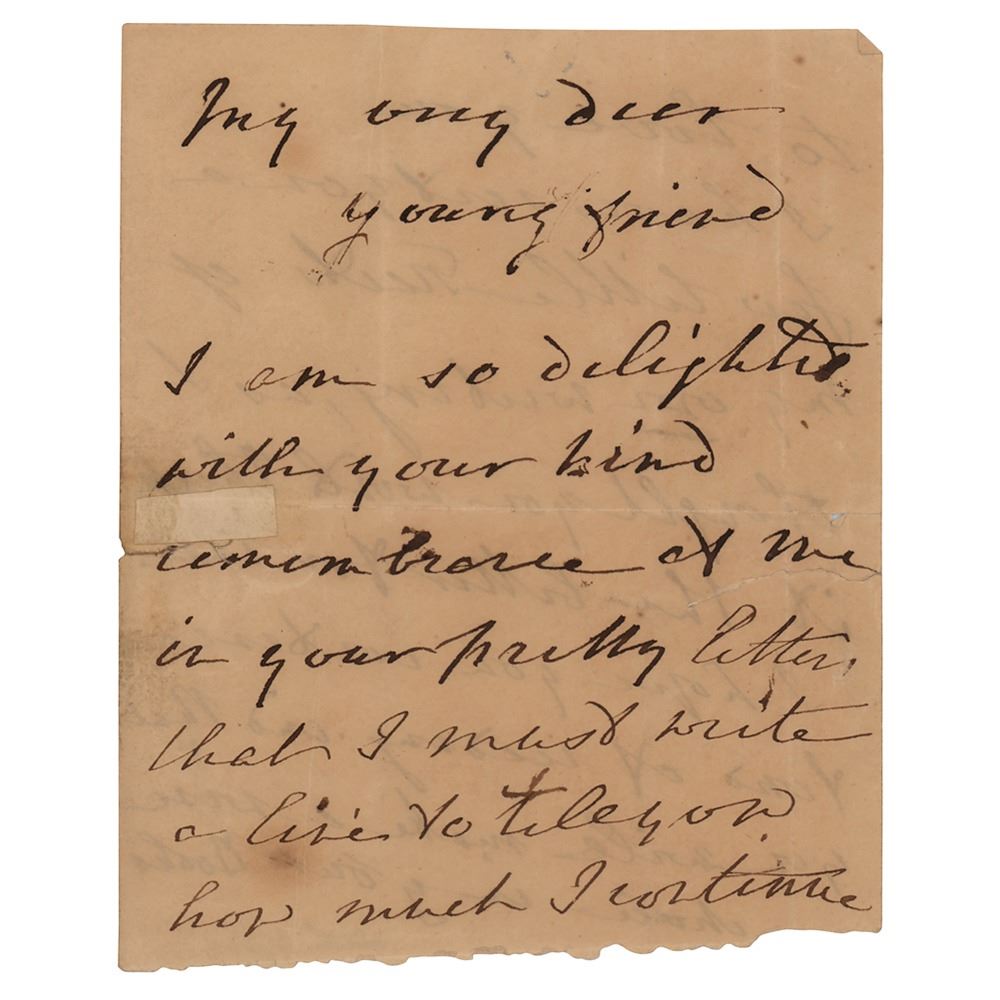 My very dear
young friend
I am so delighted
with your kind
remembrance of me
in your pretty letter,
that I must write
a line to tell you
how much I continue